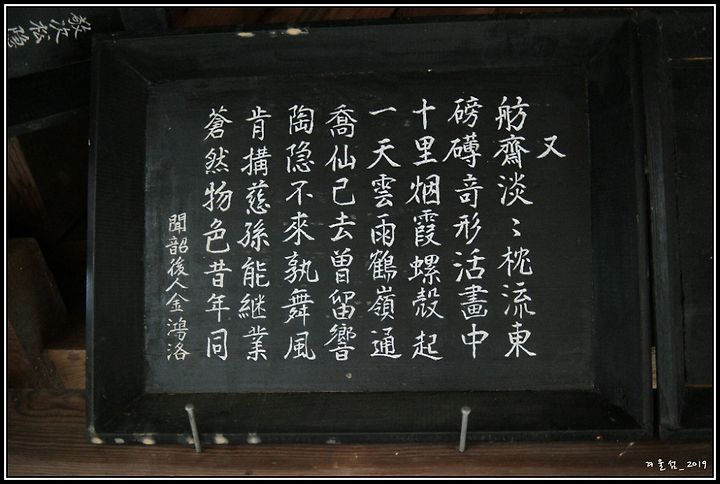 又
舫齋淡〻枕流東
磅礴竒形活畫中
十里烟霞螺殼起
一天雲雨鶴嶺通
喬仙已去曾留響
陶隐不來孰舞風
肯搆慈孫能継業
蒼然物色昔年同
聞韶後人金鴻洛
敬次松
겨울섬_2019